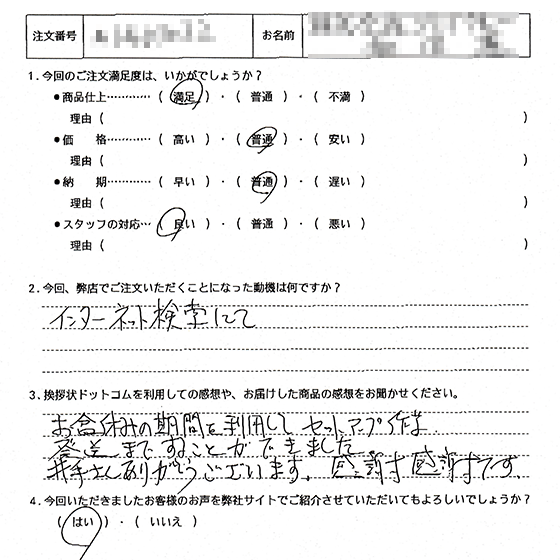 注文番号 お名前
1.今回のご注文満足度は、いかがでしょうか？
●商品仕上…………（ 満足 ）・（ 普通 ）・（ 不満 ）
理由（ ）
●価　　格…………（ 高い ）・（ 普通 ）・（ 安い ）
理由（ ）
●納　　期…………（ 早い ）・（ 普通 ）・（ 遅い ）
理由（ ）
●スタッフの対応…（ 良い ）・（ 普通 ）・（ 悪い ）
理由（ ）
2.今回、弊店でご注文いただくことになった動機は何ですか？
インターネット検索にて
3.挨拶状ドットコムを利用しての感想や、お届けした商品の感想をお聞かせください。
お盆休みの期間を利用して セットアップ作業
発送まですることができました
井手さんありがとうございます。感謝感謝です
4.今回いただきましたお客様のお声を弊社サイトでご紹介させていただいてもよろしいでしょうか？
（ はい ）・（ いいえ ）